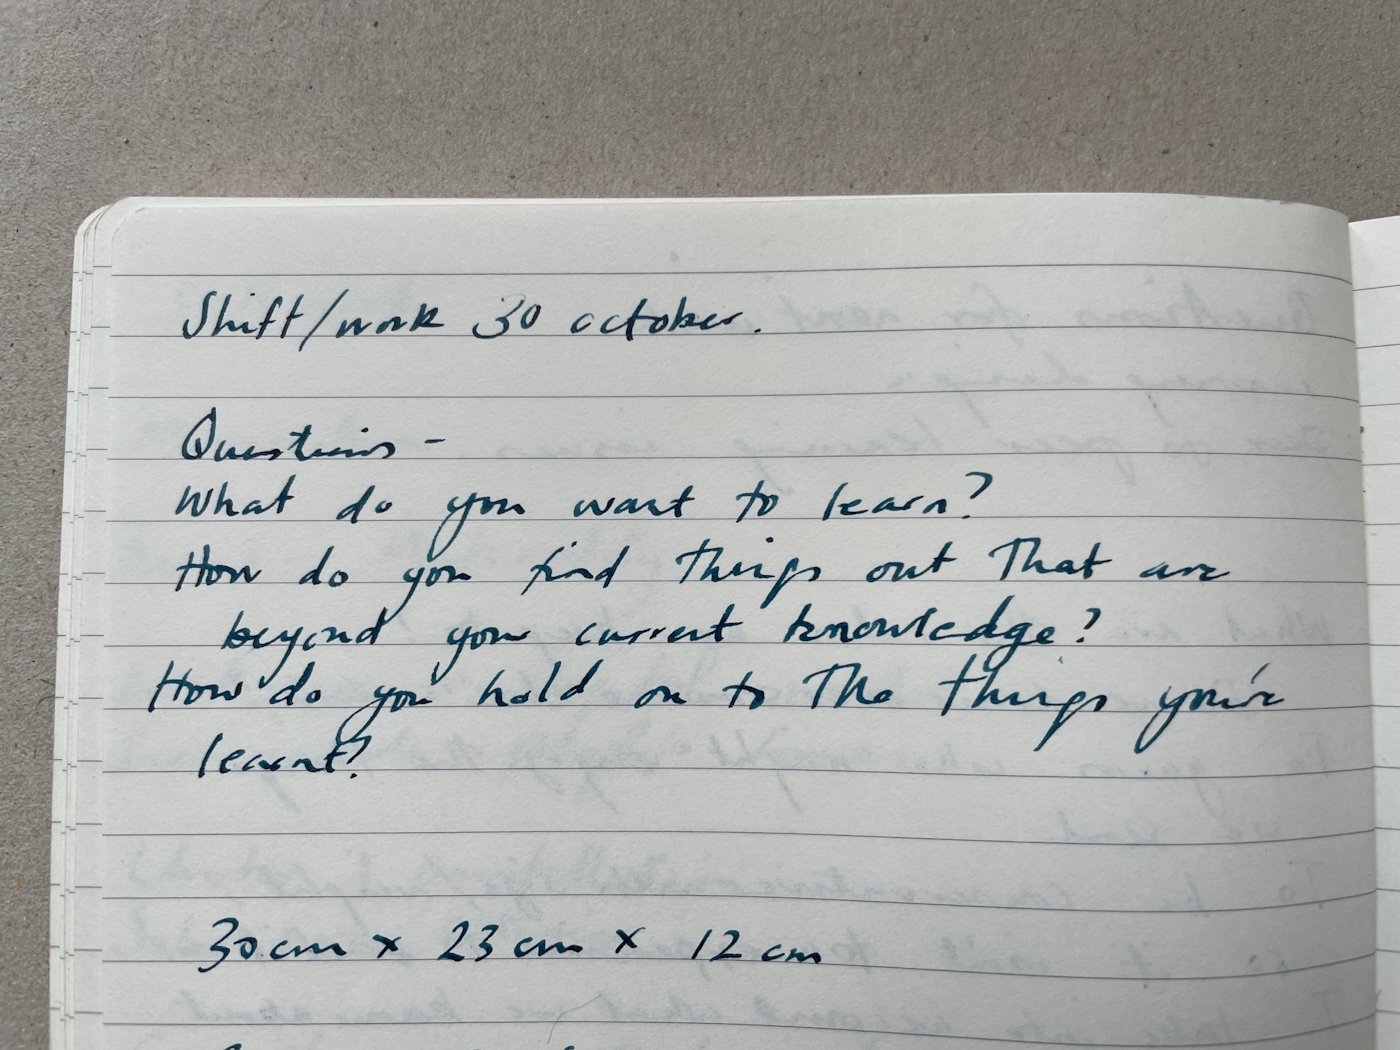 Shift/work 30 october.
Questions -
What do you want to learn?
How do you find things out that are
beyond your current knowledge?
How do you hold on to the things you've
learnt?
30cm x 23cm x 12cm